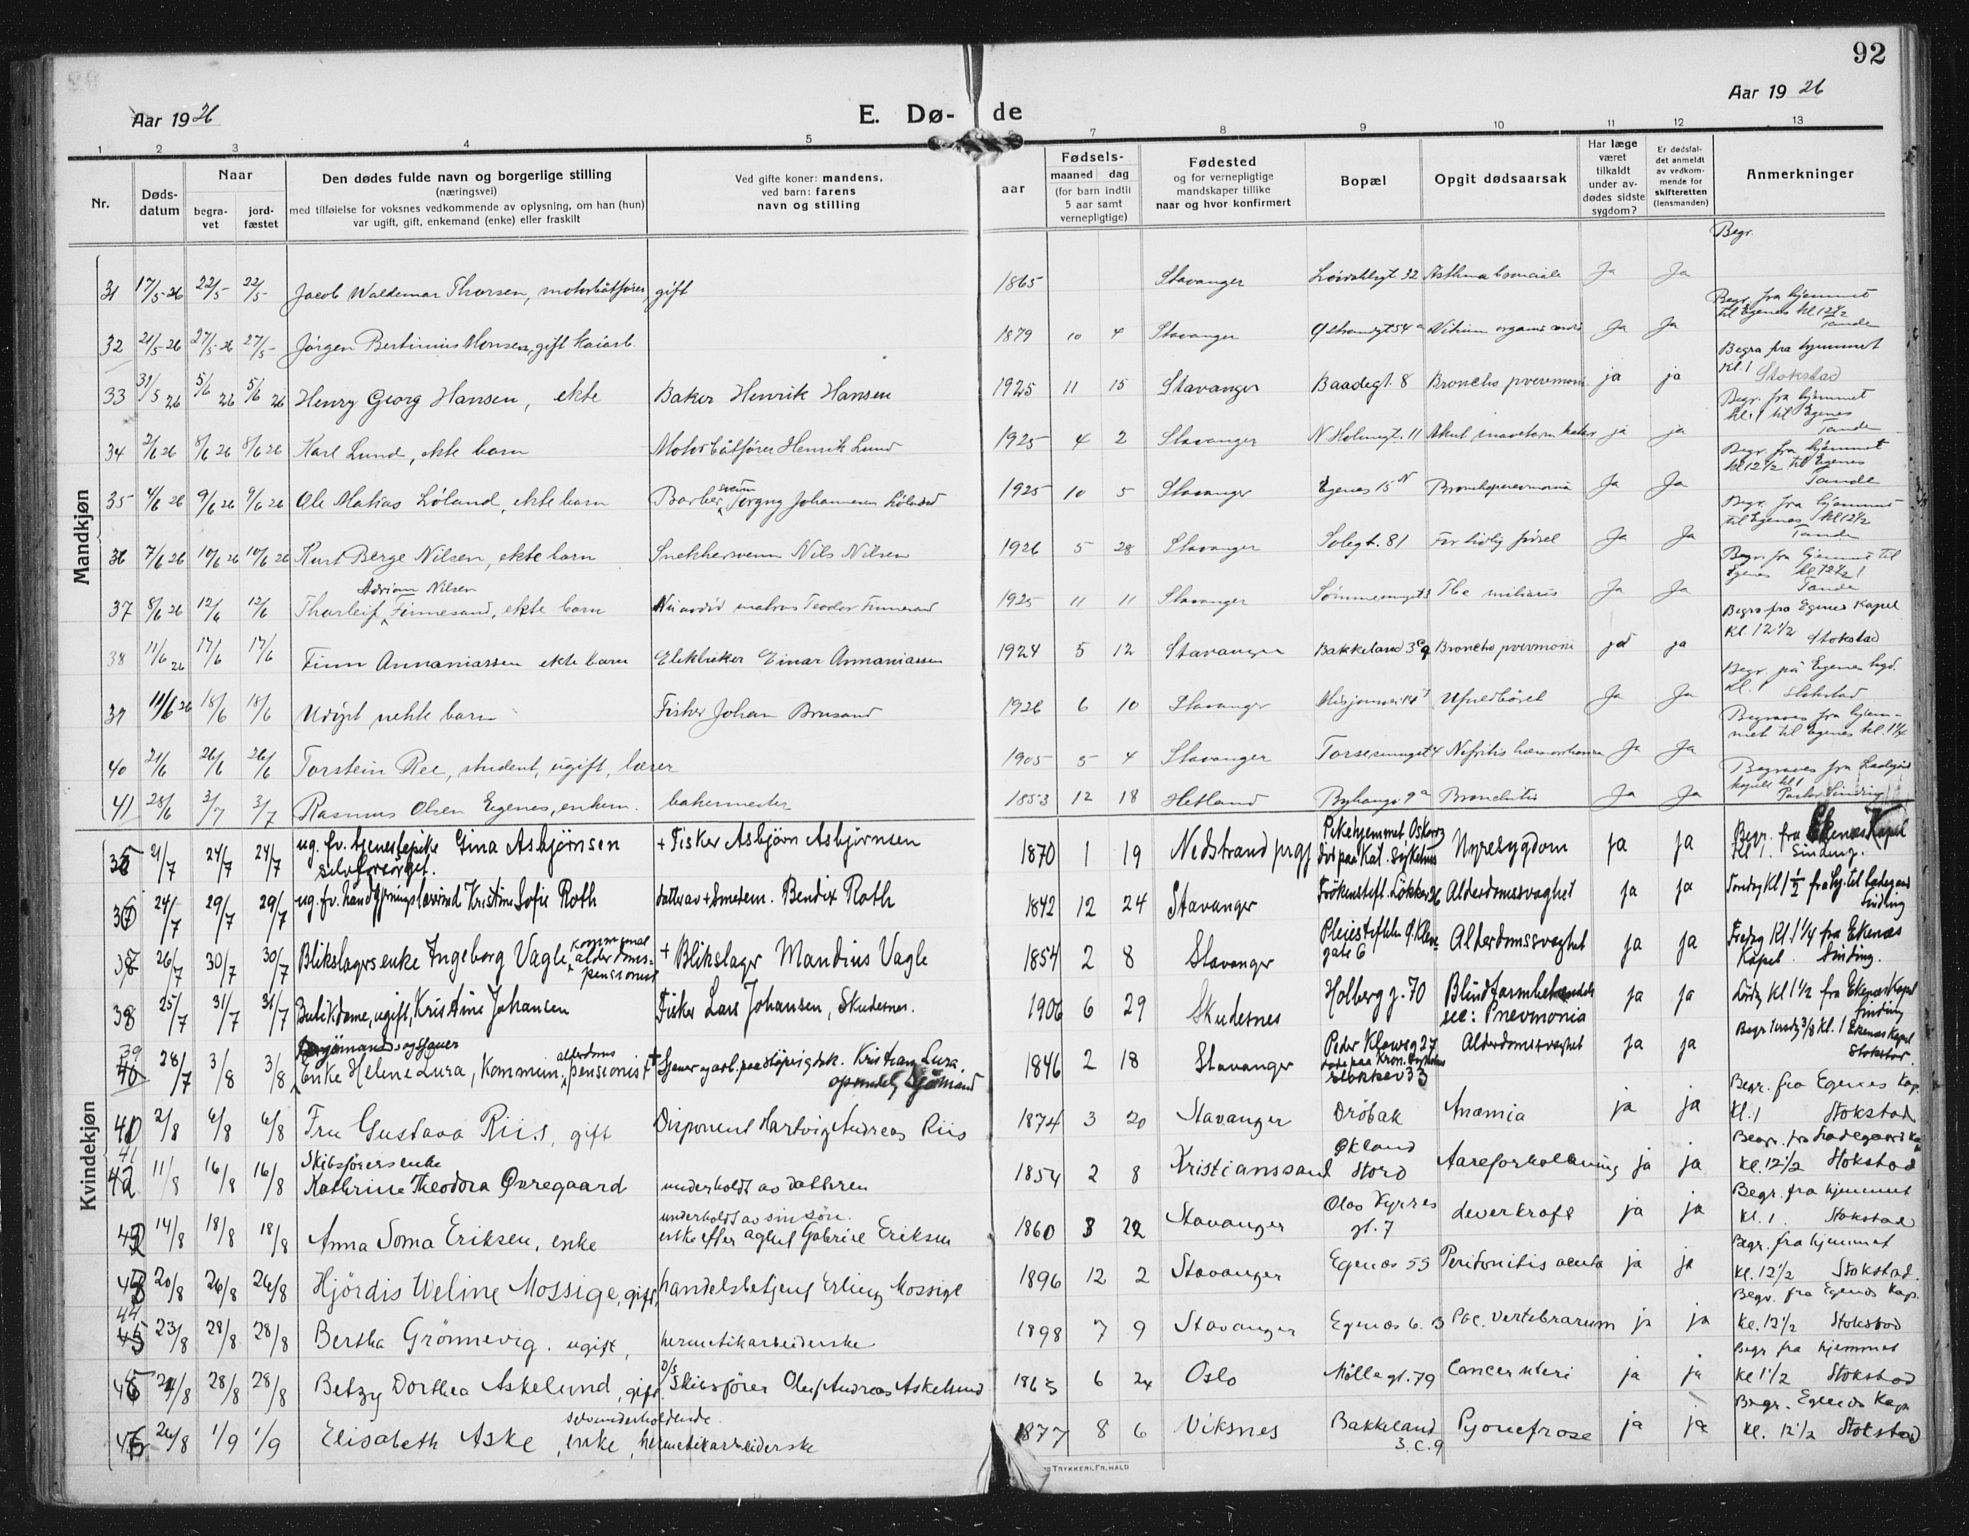 92
Aar 1926
E. Dø-
de
Aar 1926
1 2 3 4 5 7 8 9 10 11 12 13
Nr.
Døds-
datum
Naar
begra-
vet
jord-
fæstet
Den dødes fulde navn og borgerlige stilling
(næringsvei)
med tilføielse for voksnes vedkommende av oplysning, om han (hun)
var ugift, gift, enkemand (enke) eller fraskilt
Ved gifte koner: mandens,
ved barn: farens
navn og stilling
aar
Fødsels-
maaned dag
(for barn indtil
5 aar samt
vernepligtige)
Fødested
og for vernepligtige
mandskaper tillike
naar og hvor konfirmert
Bopæl
Opgit dødsaarsak
Har læge
været
tilkaldt
under av-
dødes sidste
sygdom?
Er dødsfal-
det anmeldt
av vedkom-
mende for
skifteretten
(lensmanden)
Anmerkninger
Begr.
Mandkjøn
31 17/5-26 22/5- 22/5- Jacob Waldemar Thorsen, motorbåtfører, gift 1865 Stavanger Ja Ja
Begr. fra hjemmet
til Egenes kl 12 1/2
Tande
32 21/5-26 27/5-26 27/5- Jörgen Bertinius Monsen, gift kaiarb. 1879 10 4 Stavanger Vitium organ. cordis Ja Ja
Begra fra hjemmet
kl. 1 Stokstad
33 31/5 26 5/6 26 5/6 26 Henry Georg Hansen, ekte Baker Henrik Hansen 1925 11 15 Stavanger Baadegt. 8 Broncho pnevmoni ja ja
Begr. fra hjemmet
kl. 1 til Egenes
Tande
34 2/6 26 8/6 26 8/6 26 Karl Lund, ekte barn Motorbåtfører Henrik Lund 1925 4 2 Stavanger N Holmegt. 11 ja ja
Begr. fra hjemmet
kl 12 1/2 til Egenes
Tande
35 4/6 26 9/6 26 9/6 26 Ole Matias Löland, ekte barn Barbersvenn Johannesen Löland 1925 10 5 Stavanger Egenes 15 N Bronchopnevmonia Ja Ja
Begr. fra hjemmet
til Egenes kl 12 1/2
Tande
36 7/6 26 10/6 26 10/6 26 Kurt Berge Nilsen, ekte barn Snekkersvenn Nils Nilsen 1926 5 28 Stavanger Solegt. 81 For tidlig födsel Ja Ja
Begr. fra hjemmet til
Egenes kl 12 1/2
Tande
Adrian Nilsen
37 8/6 26 12/6 12/6 Thorleif Finnesand, ekte barn matros Teodor Finnesand 1925 11 11 Stavanger Tbc miliaris Ja Ja
Begra fra Egenes Kapel
Kl 12 1/2 Stokstad
38 11/6 26 17/6 17/6 Finn Annaniassen ekte barn Elektriker Einar Annaniassen 1924 5 12 Stavanger Bakkeland 3 C 9 Broncho pnevmoni ja ja
Begr på Egenes
kl. 1 Stokstad
39 11/6 26 18/6 18/6 Udöpt uekte barn Fisker Johan Brusand 1926 6 10 Stavanger Ufuldbåret Ja Ja
Begraves fra hjem-
met til Egenes kl. 1 1/4
40 21/6 26/6 26/6 Torstein Ree, student, ugift, lærer 1905 5 4 Stavanger Nefritis Ja Ja
Begraves fra Ladegård
kapell kl 1
Pastor Sinding
41 28/6 3/7 3/7 Rasmus Olsen Egenes, enkem. bakermester 1853 12 18 Hetland Byhaugv. 9 a Bronchitis Ja Ja
Kvindekjøn
35 21/7 24/7 24/7 ug. fv. tjenestepike Gina Asbjørnsen + Fisker Asbjørn Asbjørnsen 1870 1 19 Nedstrand prgj Pikehjemmet Nyresygdom ja ja
selvforsørget. død paa Kat. Sykehus
Begr. fra Ekenæs Kapel
Kl 1. Sinding.
36 24/7 29/7 29/7 ug. fv. haandgjerningslærerinde Kristine Sofie Roth datter av + Smedem. Bendix Roth 1842 12 24 Stavanger Alderdomssvaghet ja ja
Torsdag Kl 1 1/2 fra hj. til Ladegaard
Sinding
37 26/7 30/7 30/7 Blikslagers enke Ingeborg Vagle, kommunal alderdoms-pensionist + Blikslager Mandius Vagle 1854 2 8 Stavanger Pleiestiftelsen Alderdomssvaghet ja ja
gate 6
Fredag Kl. 1 1/4 fra Ekenæs
Kapel. Sinding.
38 25/7 31/7 31/7 Butikdame, ugift, Kristine Johansen Fisker Lars Johansen, Skudesnes. 1906 6 29 Skudesnes Holberg g. 70 Blindtarmbetændelse ja ja
sec: Pnevmonia
Lørdag Kl 1 1/2 fra Ekenæs Kapel
Sinding
39 28/7 3/8 3/8 Enke Helene Lura, Kommun. alderdoms pensionist + Kristian Lura. 1846 2 18 Stavanger Peder Klowsg 27 Alderdomssvaghet ja ja
40 oprindelig Sjømand
Begr. tirsdag 3/8 kl. 1 Ekenæs Kapel
Stokstad.
40 2/8 6/8 6/8 Fru Gustava Riis, gift Disponent Hartvig Andreas Riis 1874 3 20 Stavanger Drøbak Anæmia ja ja
Begr. fra Egenes Kap.
Kl. 1 Stokstad
41
42 11/8 16/8 16/8 Skibsførers enke
Kathrine Theodora Øvregaard underholdt av datteren 1854 2 8 Kristianssand Økland
Stord Aareforkalkning ja ja
Begr. fra Ladegaard Kap
Kl. 12 1/2 Stokstad
42 14/8 18/8 18/8 Anna Soma Eriksen, enke underholdt av sin søn.
enke efter agent Gabriel Eriksen 1860 3 22 Stavanger Olav Kyrres
gt. 7 Leverkræft ja ja
Begr. fra hjemmet
Kl. 1. Stokstad
43 20/8 26/8 26/8 Hjördis Weline Mossige, gift, handelsbetjent Erling Mossige 1896 12 2 Stavanger Egenæs 55 Peritonitis acuta ja ja
Begr. fra hjemmet
Kl. 12 1/2 Stokstad.
44
45 23/8 28/8 28/8 Bertha Grönnevig. ugift, hermetikarbeiderske 1898 7 9 Stavanger Egenæs 6. B Tbc. vertebrarum ja ja
Begr. fra Egenes Kap.
Kl. 12 1/2 Stokstad
45 24/8 28/8 28/8 Betzy Dorthea Askelund, gift D/S Skibsfører Oluf Andreas Askelund 1863 6 24 Oslo Möllegt. 79 Cancer uteri ja ja
Begr fra hjemmet
Kl 1 1/2 Stokstad
46 26/8 1/9 1/9 Elisabeth Aske, enke, selvunderholdende
hermetikarbeiderske 1877 8 6 Viksnes Bakkeland
3. C. 9 Pyonefrose ja ja
Begr. Egenes Kap
Kl. 12 1/2 Stokstad
TRYKKERI, FR. HALD